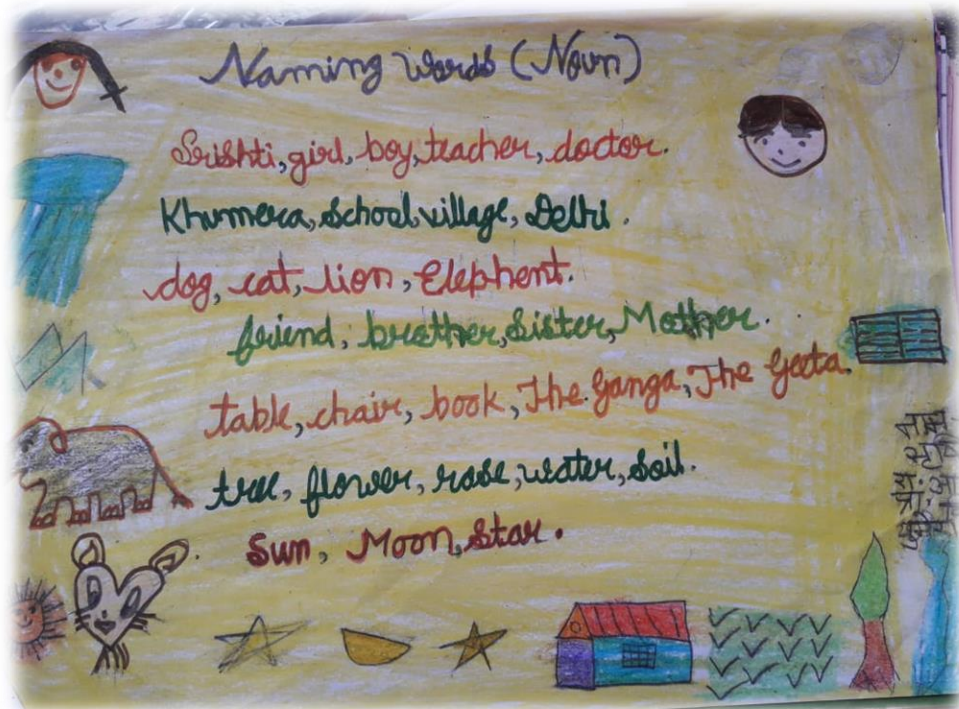 Naming Words (Noun)
Srishti, girl, boy, teacher, doctor.
Khumera, School, village, Delhi.
dog, cat, lion, Elephent.
friend, brother, Sister, Mother.
table, chair, book, The Ganga, The Geeta.
tree, flower, rose, water, Soil.
Sun, Moon, Star.